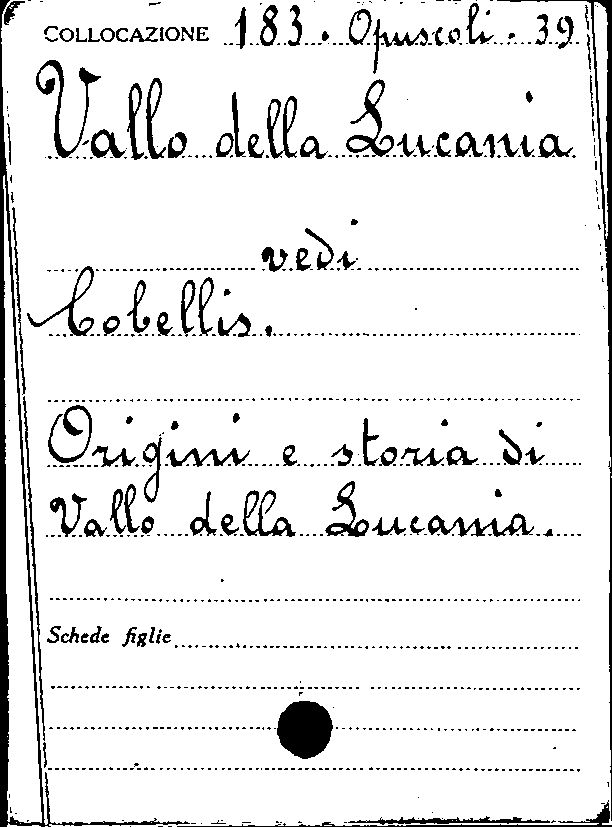 COLLOCAZIONE 183. Opuscoli. 39
Vallo della Lucania
vedi
Cobellis.
Origini e storia di
Vallo della Lucania.
Schede figlie